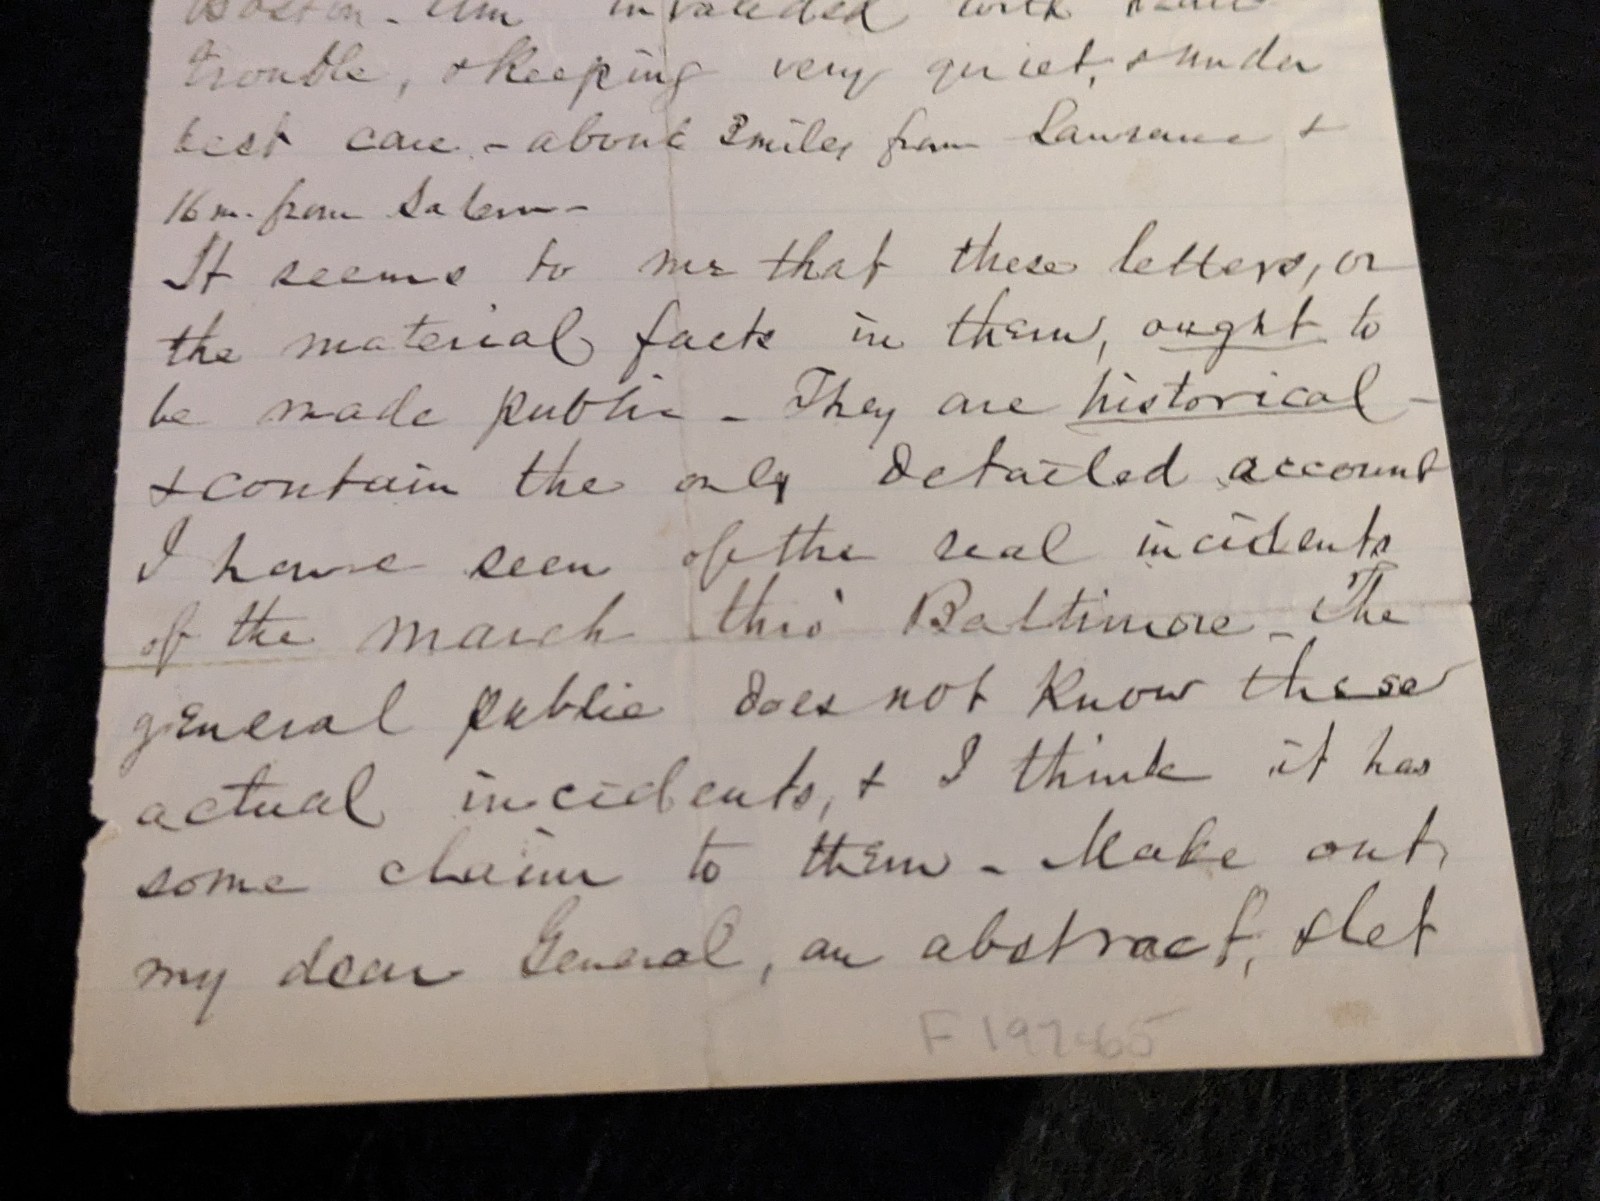 Boston - Am invalided with heart
trouble, & keeping very quiet, & under
best care - about 3 miles from Lawrence &
16 m. from Salem -
It seems to me that these letters, or
the material facts in them, ought to
be made public - They are historical -
& contain the only detailed account
I have seen of the real incidents
of the march thro' Baltimore - The
general public does not know these
actual incidents, & I think it has
some claim to them - Make out,
my dear General, an abstract, & let
F 197465